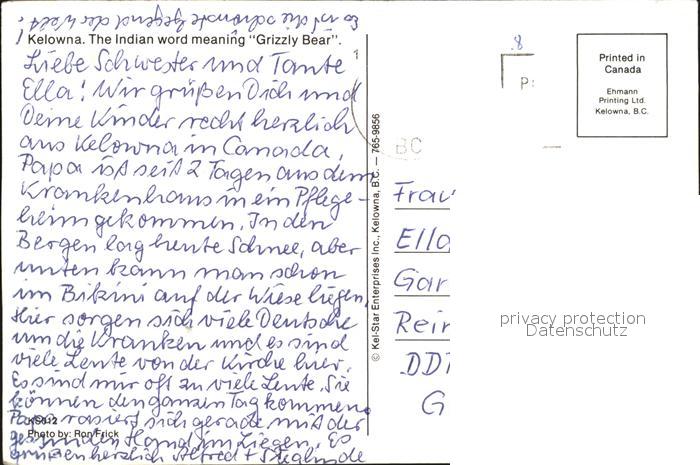 Es ist die schönste Gegend der Welt!
Kelowna. The Indian word meaning "Grizzly Bear".
Liebe Schwester und Tante
Ella! Wir grüßen Dich und
Deine Kinder recht herzlich
aus Kelowna in Canada.
Papa ist seit 2 Tagen aus dem
Krankenhaus in ein Pflege-
heim gekommen. In den
Bergen lag heute Schnee, aber
unten kann man schon
im Bikini auf der Wiese liegen.
Hier sorgen sich viele Deutsche
um die Kranken und es sind
viele Leute von der Kirche hier.
Es sind mir oft zu viele Leute. Sie
können den ganzen Tag kommen.
Papa rasiert sich gerade mit der
gesunden Hand im Liegen. Es
grüßen herzlich Alfred + Sieglinde
KS012
Photo by: Ron Frick
© Kel-Star Enterprises Inc., Kelowna, B.C. — 765-9856
1
8
P
BC
Printed in
Canada
Ehmann
Printing Ltd.
Kelowna, B.C.
Frau
Ella
Gar
Rein
DDR
G
privacy protection
Datenschutz